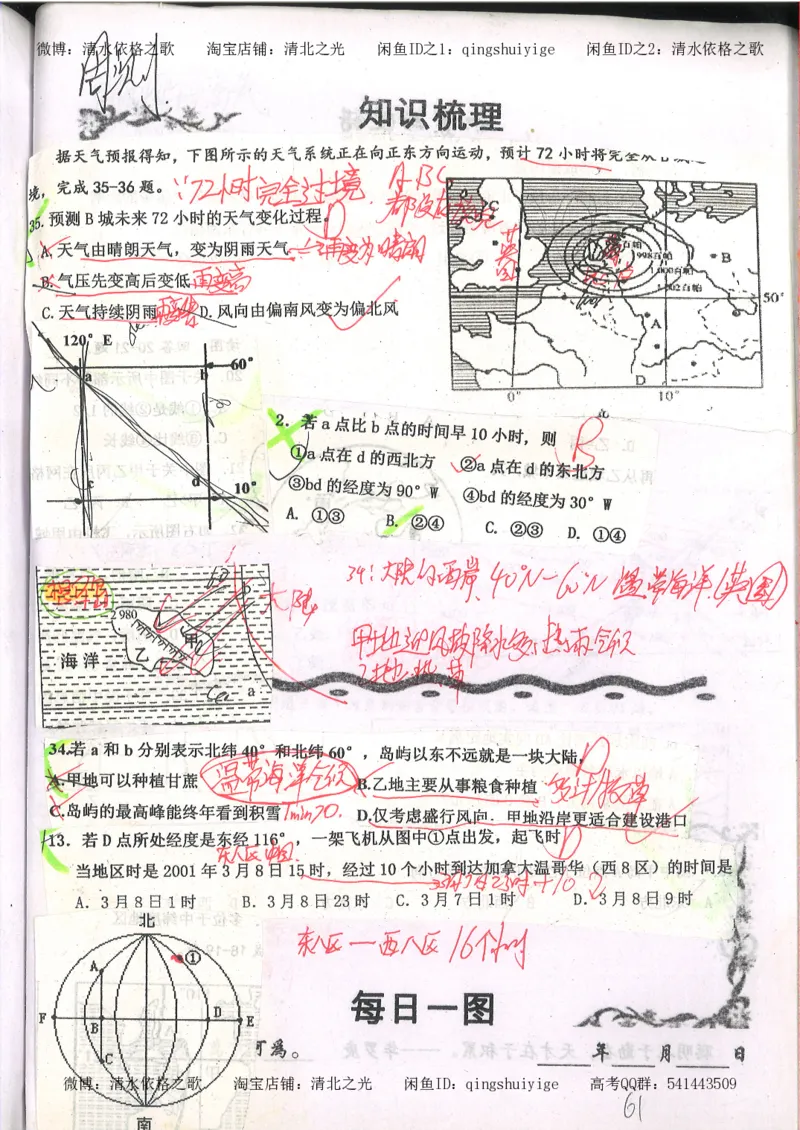 微博：清水依格之歌 淘宝店铺：清北之光 闲鱼ID之1：qingshuiyige 闲鱼ID之2：清水依格之歌
知识梳理
据天气预报得知，下图所示的天气系统正在向正东方向运动，预计 72 小时将完全从
境，完成 35-36 题。
∵72小时完全过境
A、B、C
35.预测 B 城未来 72 小时的天气变化过程。
D
A.天气由晴朗天气，变为阴雨天气
再度为晴朗
B.气压先变高后变低
再变高
C.天气持续阴雨 D.风向由偏南风变为偏北风
C
英国
白帕
998百帕
1 000百帕
1 002百帕
B
A
D
50°
0° 10°
120° E
a b 60°
c d 10°
2．若 a 点比 b 点的时间早 10 小时，则
B
①a 点在 d 的西北方 ②a 点在 d 的东北方
③bd 的经度为 90° W ④bd 的经度为 30° W
A. ①③ B. ②④ C. ②③ D. ①④
34：大陆的西岸 40°N－60°N 温带海洋(英国)
甲地迎风坡降水多
大陆
2 980
海洋
甲
乙
b
a
34.若 a 和 b 分别表示北纬 40° 和北纬 60° ，岛屿以东不远就是一块大陆，
D
A.甲地可以种植甘蔗 B.乙地主要从事粮食种植
温带海洋气候
C.岛屿的最高峰能终年看到积雪 D.仅考虑盛行风向，甲地沿岸更适合建设港口
13． 若 D 点所处经度是东经 116° ，一架飞机从图中①点出发，起飞时
D
东八区
当地区时是 2001 年 3 月 8 日 15 时，经过 10 个小时到达加拿大温哥华（西 8 区）的时间是
A. 3 月 8 日 1 时 B. 3 月 8 日 23 时 C. 3 月 7 日 1 时 D. 3 月 8 日 9 时
北
东八区—西八区 16个小时
A ①
F B D E
C
南
每日一图
可为。
年 月 日
微博：清水依格之歌 淘宝店铺：清北之光 闲鱼ID：qingshuiyige 高考QQ群：541443509
61